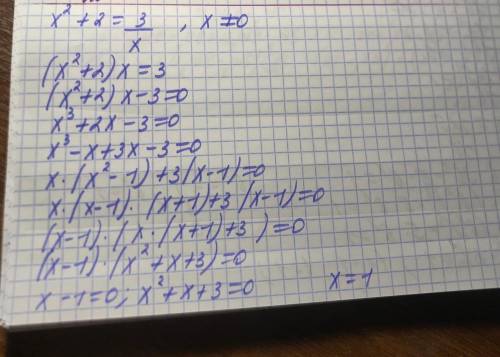 x² + 2 = 3/x , x ≠ 0
(x² + 2) x = 3
(x² + 2) x - 3 = 0
x³ + 2x - 3 = 0
x³ - x + 3x - 3 = 0
x · (x² - 1) + 3(x - 1) = 0
x · (x - 1) · (x + 1) + 3(x - 1) = 0
(x - 1) · (x · (x + 1) + 3) = 0
(x - 1) · (x² + x + 3) = 0
x - 1 = 0; x² + x + 3 = 0 x = 1